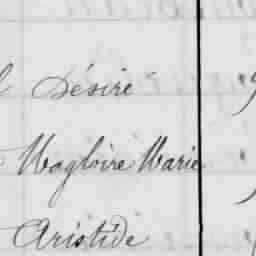 Désiré
Magloire Marie
Aristide